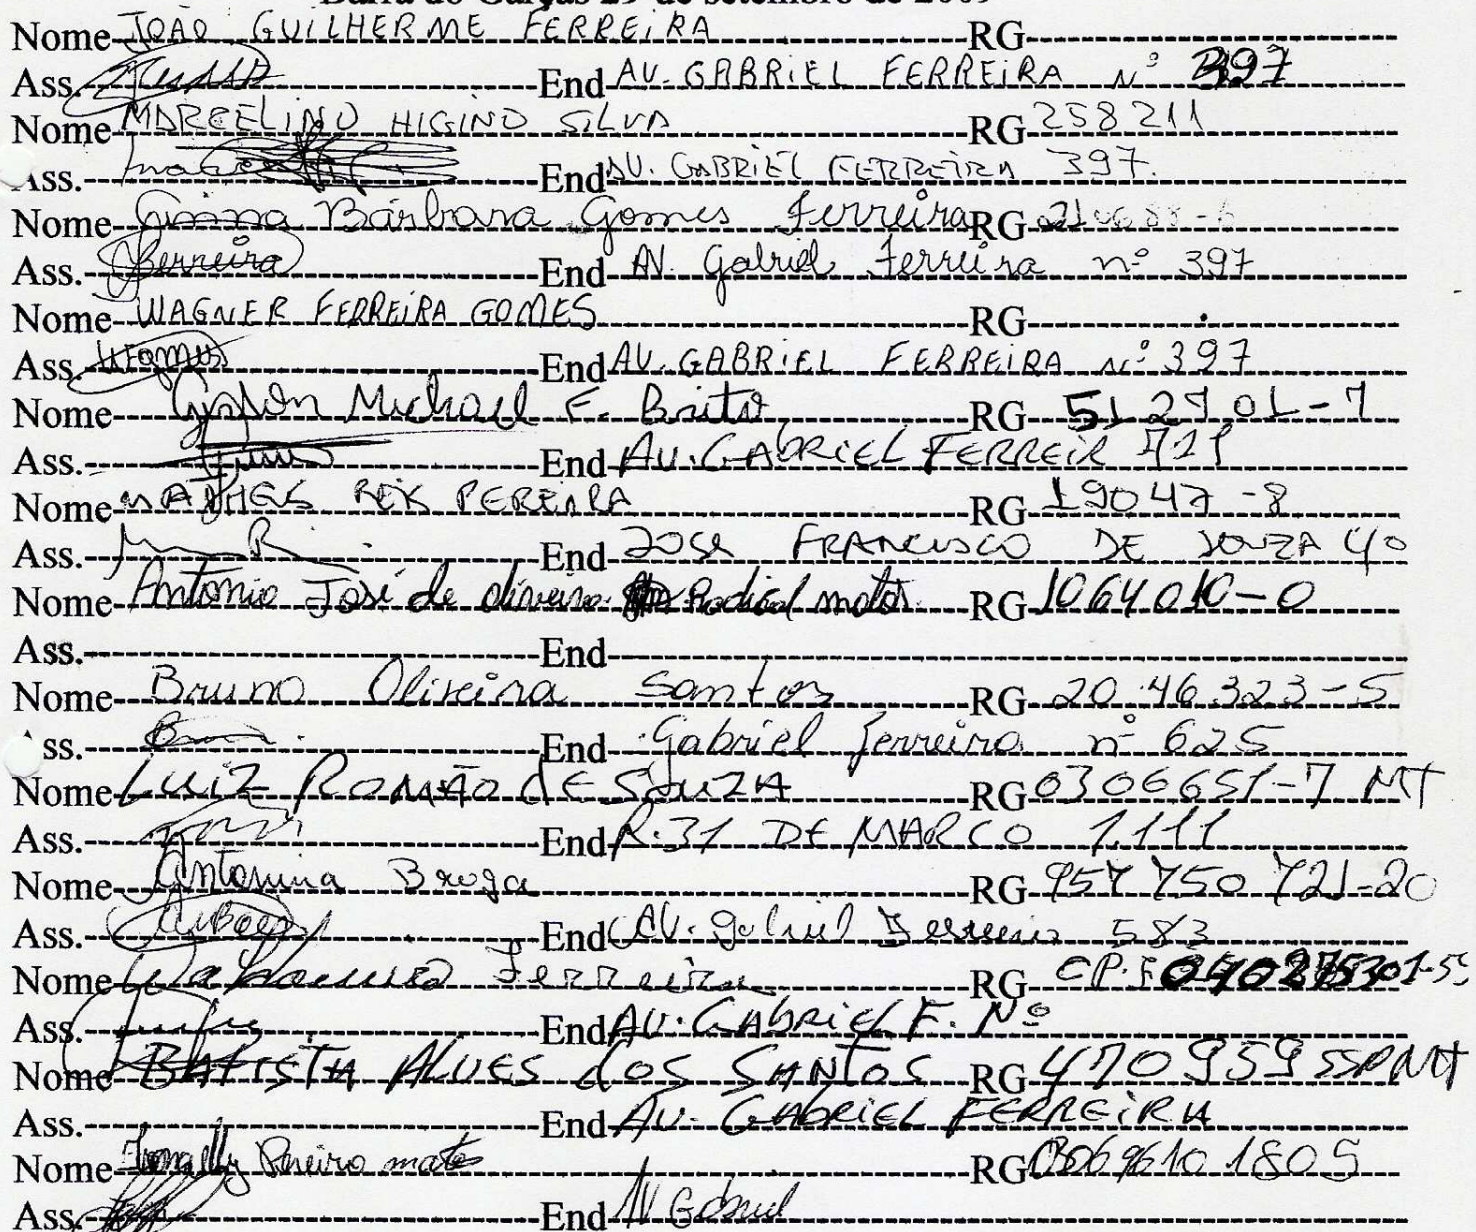 Barra do Garças 29 de setembro de 2009
Nome JOÃO GUILHERME FERREIRA RG
Ass. End AV. GABRIEL FERREIRA Nº 397
Nome MARCELINO HIGINO SILVA RG 258211
Ass. End AV. GABRIEL FERREIRA 397.
Nome Bárbara Gomes Ferreira RG
Ass. Ferreira End AV. Gabriel Ferreira nº 397
Nome WAGNER FERREIRA GOMES RG
Ass. WFGomes End AV. GABRIEL FERREIRA nº 397
Nome Michael F. Brito RG 512701-7
Ass. End AV. GABRIEL FERREIR
Nome MATHEUS REIS PEREIRA RG 19047-8
Ass. End JOSE FRANCISCO DE SOUZA 40
Nome Antonio José de oliveira Radical motos RG 1064010-0
Ass. End
Nome Bruno Oliveira Santos RG 20.46.323-5
Ass. End Gabriel Ferreira nº 625
Nome LUIZ ROMÃO dE SOUZA RG 0306651-7 MT
Ass. End R. 31 DE MARCO 1.111
Nome Antonina Braga RG 957 750 721-20
Ass. End AV. Gabriel Ferreira 583
Nome Ferreira RG C.P.F
Ass. End AV. GABRIEL F. Nº
Nome BATISTA ALVES dOS SANTOS RG 470959 SSPMT
Ass. End AV. GABRIEL FERREIRA
Nome Pereira matos RG
Ass. End AV Gabriel